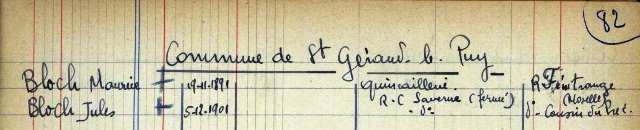 82
Commune de St Gérand-le-Puy
Bloch Maurice + 19-11-1891 quincaillerie R. Fénétrange
R.C Saverne (fermé) (Moselle)
Bloch Jules + 5-12-1901 - d° - d° - Cousin du Préc.